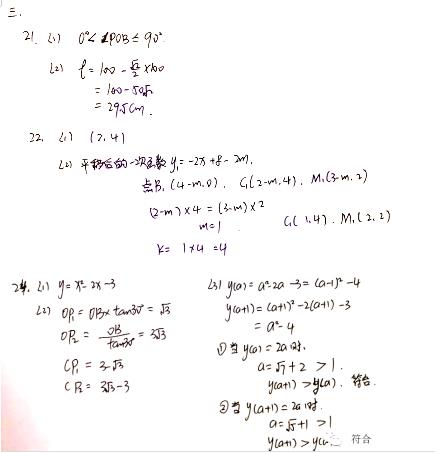 三.
21. (1) 0°<∠POB≤90°
(2) l=100-√2/2×100
=100-50√2
=29.5cm.
22. (1) (2,4)
(2) 平移后的一次函数 y₁=-2x+8-2m,
点B₁(4-m,0), C₁(2-m,4), M₁(3-m,2)
(2-m)×4=(3-m)×2
m=1
C₁(1,4), M₁(2,2)
k=1×4=4
24. (1) y=x²-2x-3
(2) OP₁=OB×tan30°=√3
OP₂=OB/tan30°=3√3
CP₁=3-√3
CP₂=3√3-3
(3) y(a)=a²-2a-3=(a-1)²-4
y(a+1)=(a+1)²-2(a+1)-3
=a²-4
①当y(a)=2a时,
a=√7+2>1.
y(a+1)>y(a), 符合.
②当y(a+1)=2a时.
a=√5+1>1
y(a+1)>y(
符合